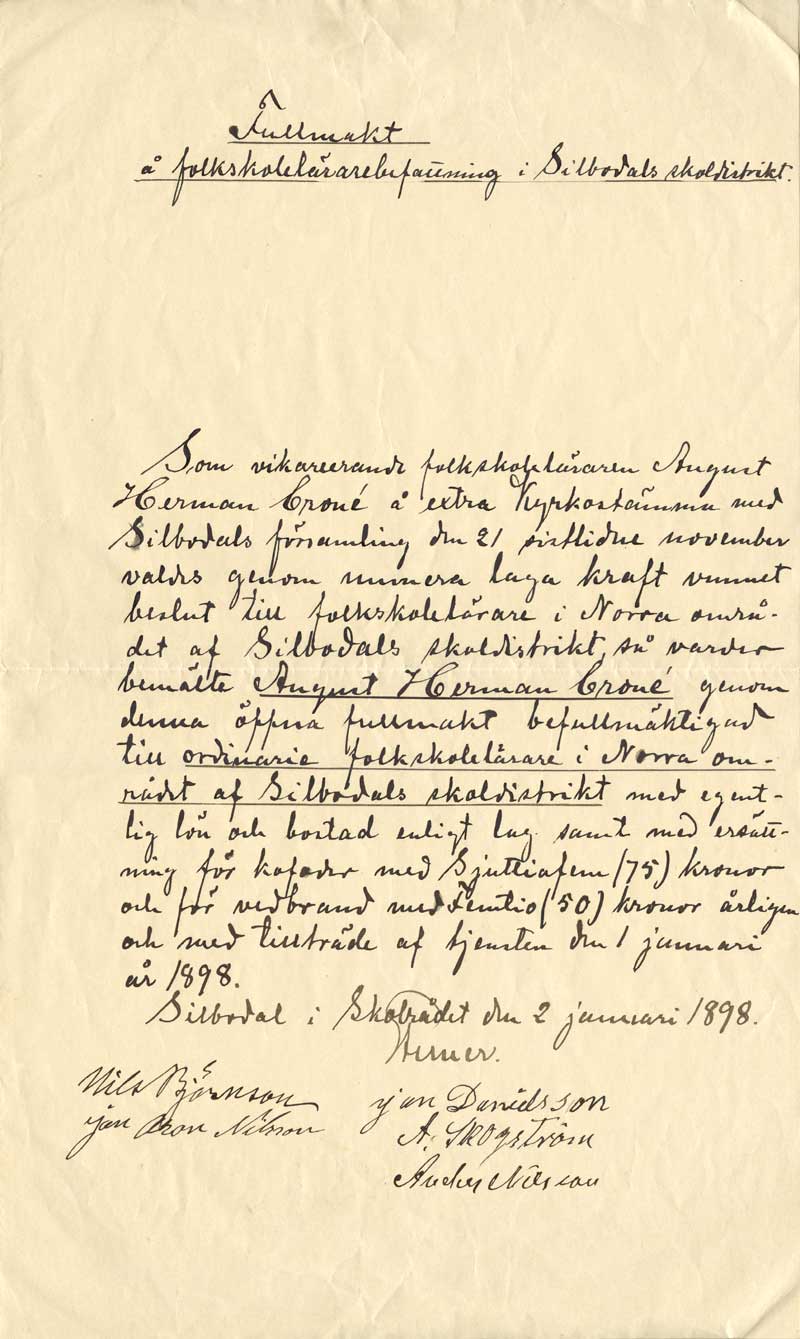 Fullmakt
å folkskolelärarebefattning i Silbodals skoldistrikt.
Som vikarierande folkskoleläraren August
Herman Croné å extra Kyrkostämma med
Silbodals församling den 21 sistlidne november
valdes genom numera laga kraft vunnet
beslut till folkskolelärare i Norra områ-
det af Silbodals skoldistrikt, så varder
bemälte August Herman Croné genom
denna öppna fullmakt befullmäktigad
till ordinarie folkskolelärare i Norra om-
rådet af Silbodals skoldistrikt med egent-
lig lön och bostad enligt lag samt med ersätt-
ning för kofoder med Sjuttiofem (75) kronor
och för vedbrand med Femtio (50) kronor årligen
och med tillträde af tjensten den 1 januari
år 1898.
Silbodal i Skolrådet den 2 januari 1898.
Nils Björnson
Jan Danielsson
Jan Nilsson
A. Skogström
Anders Nilsson